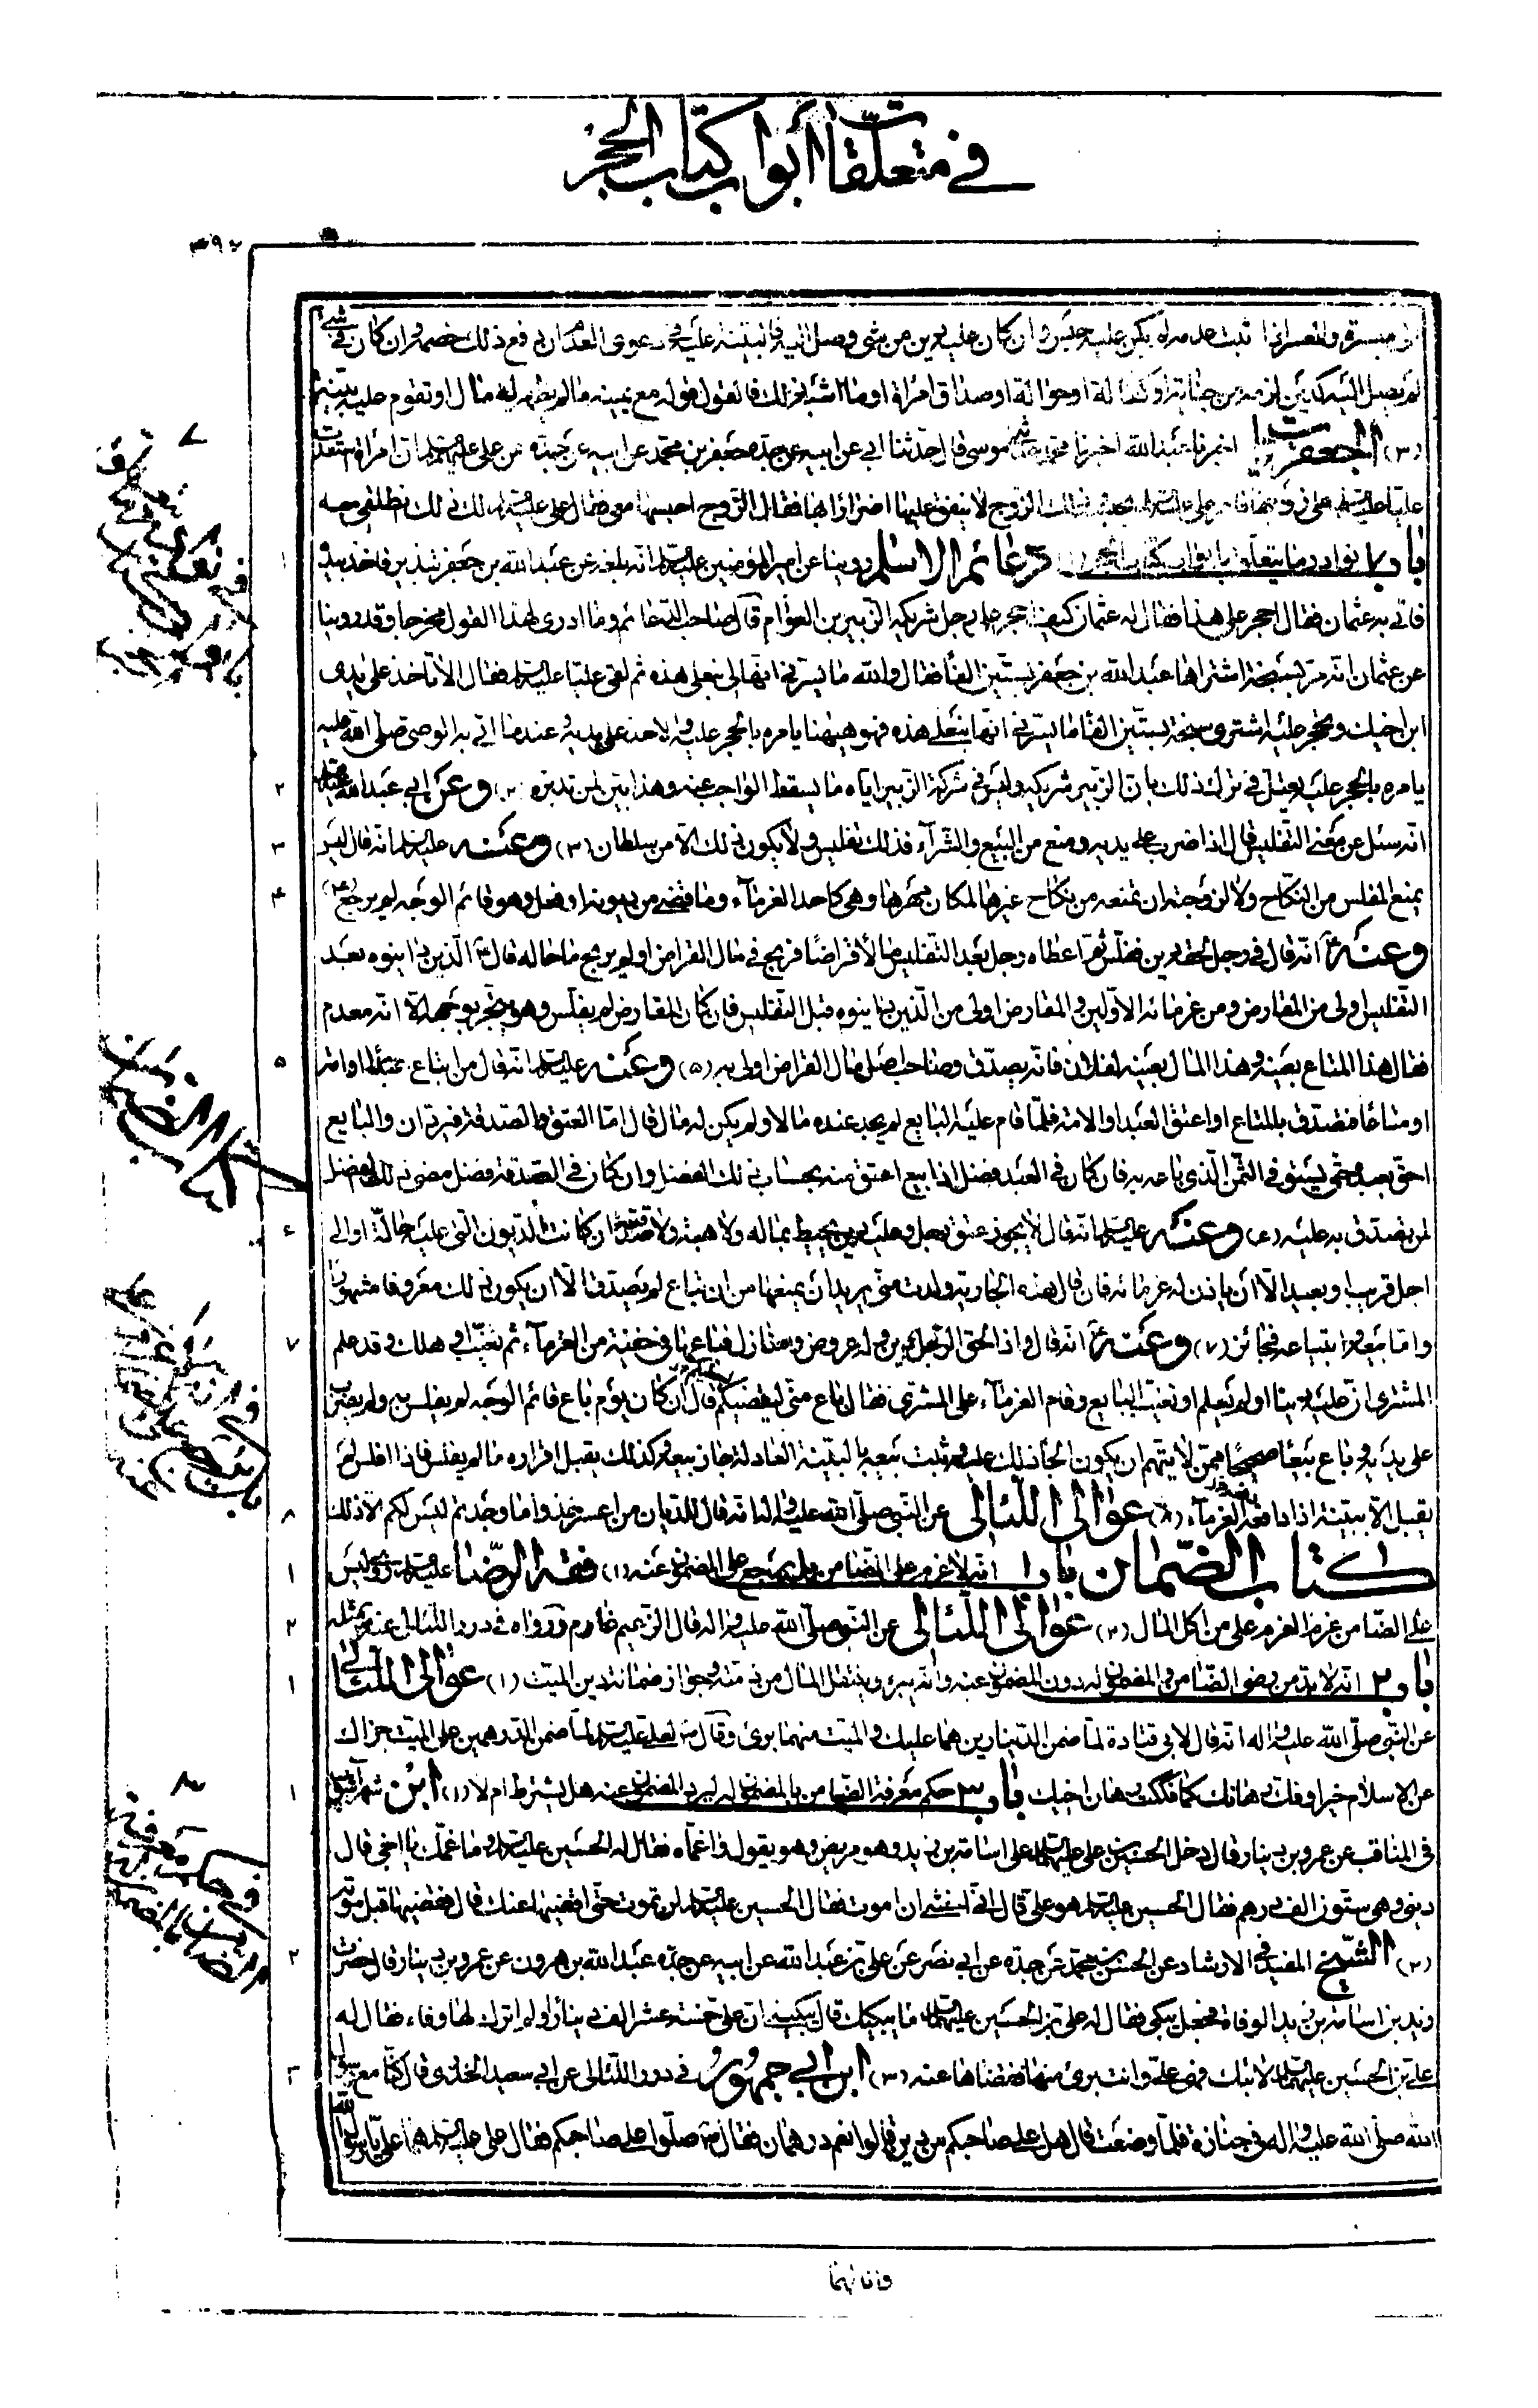 في متعلقات أبواب كتاب الحجر
٣٩٧
ميسرة والمعسر اذا ثبت عدمه لم يكن عليه حبس وان كان عليه دين من شيء وصل اليه فالبينة عليه في دعوى العدم ان دفع ذلك خصمه وان كان في شيء
لم يصل اليه كدين لزمه من جناية او كفالة او حوالة او صداق امرأة او ما اشبه ذلك فالقول قوله مع يمينه ما لم يظهر له مال او تقوم عليه بينة
(٣) الجعفريات اخبرنا عبدالله اخبرنا محمد حدثني موسى قال حدثنا ابي عن ابيه عن جده جعفر بن محمد عن ابيه عن جده عن علي عليهم السلام ان امرأة استعدت
عليا عليه السلام على زوجها فامر علي عليه السلام بحبسه وذلك الزوج لا ينفق عليها اضرارا بها فقال الزوج احبسها معي فقال علي عليه السلام لك ذلك انطلقي معه
باب ٧ نوادر ما يتعلق بابواب كتاب الحجر (١) دعائم الاسلام روينا عن امير المؤمنين عليه السلام انه بلغه عن عبدالله بن جعفر تبذير فاخذ بيده
فاتى به عثمان فقال احجر على هذا فقال له عثمان كيف احجر على رجل شريكه الزبير بن العوام قال صاحب الدعائم وما ادرى لهذا القول مخرجا وقد روينا
عن عثمان انه مر بسبخة اشتراها عبدالله بن جعفر بستين الفا فقال والله ما يسرني انها لي بنعلي هذه ثم لقى عليا عليه السلام فقال الا تأخذ على يدي
ابن اخيك وتحجر عليه اشترى سبخة بستين الفا ما يسرني انها بنعلي هذه فهو هيهنا يامره بالحجر عليه والاخذ على يديه وعندما اتى به الوصى صلى الله عليه
يامره بالحجر عليه يعتل في ترك ذلك بان الزبير شريكه وليس في شركة الزبير اياه ما يسقط الواجب عنه وهذا بين لمن تدبره (٢) وعن ابي عبدالله عليه السلام
انه سئل عن معنى التفليس قال اذا ضرب على يديه ومنع من البيع والشراء فذلك تفليس ولا يكون ذلك الا من سلطان (٣) وعنه عليه السلام انه قال ليس
يمنع المفلس من النكاح ولا لزوجته ان تمنعه من نكاح غيرها لمكان مهرها وهي كاحد الغرماء وما قضى من ديونه او فعل وهو قائم الوجه لم يرجع (٤)
وعنه انه قال في رجل لحقه دين ففلس ثم اعطاه رجل بعد التفليس مالا قراضا فربح في مال القراض او لم يربح ما حاله قال الذين داينوه بعد
التفليس اولى من المقارض ومن غرمائه الاولين والمقارض اولى من الذين داينوه قبل التفليس فان كان المقارض لم يفلس وهو يتجر بوجهه الا انه معدم
فقال هذا المتاع بعينه وهذا المال بعينه لفلان فانه يصدق وصاحب اصل مال القراض اولى به (٥) وعنه عليه السلام انه قال من ابتاع عبدا او امة
او متاعا فتصدق بالمتاع او اعتق العبد او الامة فلما قام عليه البايع لم يجد عنده مالا ولم يكن له مال قال اما العتق والصدقة فيردان والبايع
احق بعبده حتى يستوفي الثمن الذي باعه به فان كان في العبد فضل اذا بيع اعتق منه بحساب ذلك الفضل وان كان في الصدقة فضل مضى ذلك الفضل
لمن تصدق به عليه (٦) وعنه عليه السلام انه قال لا يجوز عتق رجل وعليه دين يحيط بماله ولا هبته ولا صدقته وان كانت الديون التي عليه حالة او الى
اجل قريب او بعيد الا ان ياذن له غرمائه فان قال هذه الجارية ولدت مني يريد ان يمنعها من ان تباع لم يصدق الا ان يكون ذلك معروفا مشهورا
واما بيعه وابتياعه فجائز (٧) وعنه انه قال واذا لحق الرجل دين وله عروض ومنازل فباعها في خفية من الغرماء ثم تغيب او هلك وقد علم
المشترى ان عليه دينا او لم يعلم او تغيب البايع وقام الغرماء على المشترى فقال باع مني ليقضيكم قال ان كان يوم باع قائم الوجه لم يفلس به ولم يضرب
على يديه وباع بيعا صحيحا ممن لا يتهم ان يكون الجأ ذلك عليه وثبت بيعه بالبينة العادلة جاز بيعه وكذلك يقبل اقراره ما لم يفلس فاذا افلس لم
يقبل الا ببينة اذا دافعه الغرماء (٨) عوالى اللئالى عن النبي صلى الله عليه واله انه قال للديان من اعسر خذوا ما وجدتم ليس لكم الا ذلك
كتاب الضمان باب ١ انه لا غرم على الضامن بل يرجع على المضمون عنه (١) فقه الرضا عليه السلام روى ليس
على الضامن غرم الغرم على من اكل المال (٢) عوالى اللئالى عن النبي صلى الله عليه واله قال الزعيم غارم ورواه في درر اللئالى عنه مثله
باب ٢ انه لا بد من رضى الضامن والمضمون له دون المضمون عنه وانه يبرء وينتقل المال من ذمته وجواز ضمانه دين الميت (١) عوالى اللئالى
عن النبي صلى الله عليه واله انه قال لابي قتادة لما ضمن الدينارين هما عليك والميت منهما برئ وقال لعلي عليه السلام لما ضمن الدرهمين على الميت جزاك
عن الاسلام خيرا وفك رهانك كما فككت رهان اخيك باب ٣ حكم معرفة الضامن بالمضمون له والمضمون عنه هل يشترط ام لا (١) ابن شهر آشوب
في المناقب عن عمرو بن دينار قال دخل الحسين بن علي عليهما السلام على اسامة بن زيد وهو مريض وهو يقول واغماه فقال له الحسين عليه السلام وما غمك يا اخي قال
ديني وهي ستون الف درهم فقال الحسين عليه السلام هو علي قال اني اخشى ان اموت فقال الحسين عليه السلام لن تموت حتى اقضيها عنك قال فقضيها قبل موته
(٢) الشيخ المفيد في الارشاد عن الحسن بن محمد عن جده عن ابي نصر عن علي بن عبدالله عن ابيه عن جده عبدالله بن هرون عن عمرو بن دينار قال حضرت
زيد بن اسامة بن زيد الوفاة فجعل يبكي فقال له علي بن الحسين عليهما السلام ما يبكيك قال يبكيني ان علي خمسة عشر الف دينار ولم اترك لها وفاء فقال له
علي بن الحسين عليهما السلام لا تبك فهي علي وانت برئ منها فقضاها عنه (٣) ابن ابي جمهور في درر اللئالى عن ابي سعيد الخدري قال كنا مع رسول
الله صلى الله عليه واله في جنازة فلما وضعت قال هل على صاحبكم من دين قالوا نعم درهمان فقال صلوا على صاحبكم فقال علي عليه السلام هما علي يا رسول الله
وانا لهما